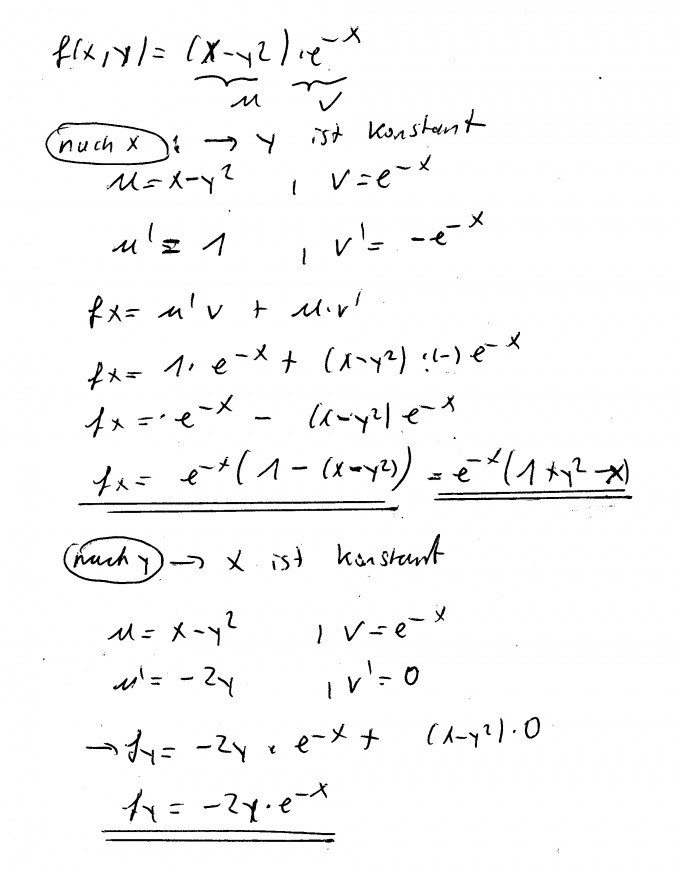 f(x,y) = (x-y²)·e^-x
u v
nach x : → y ist konstant
u = x-y² , v = e^-x
u' = 1 , v' = -e^-x
fx = u'v + u·v'
fx = 1·e^-x + (x-y²)·(-)e^-x
fx = ·e^-x - (x-y²)e^-x
fx = e^-x(1-(x-y²)) = e^-x(1+y²-x)
nach y → x ist konstant
u = x-y² , v = e^-x
u' = -2y , v' = 0
→ fy = -2y · e^-x + (x-y²)·0
fy = -2y·e^-x